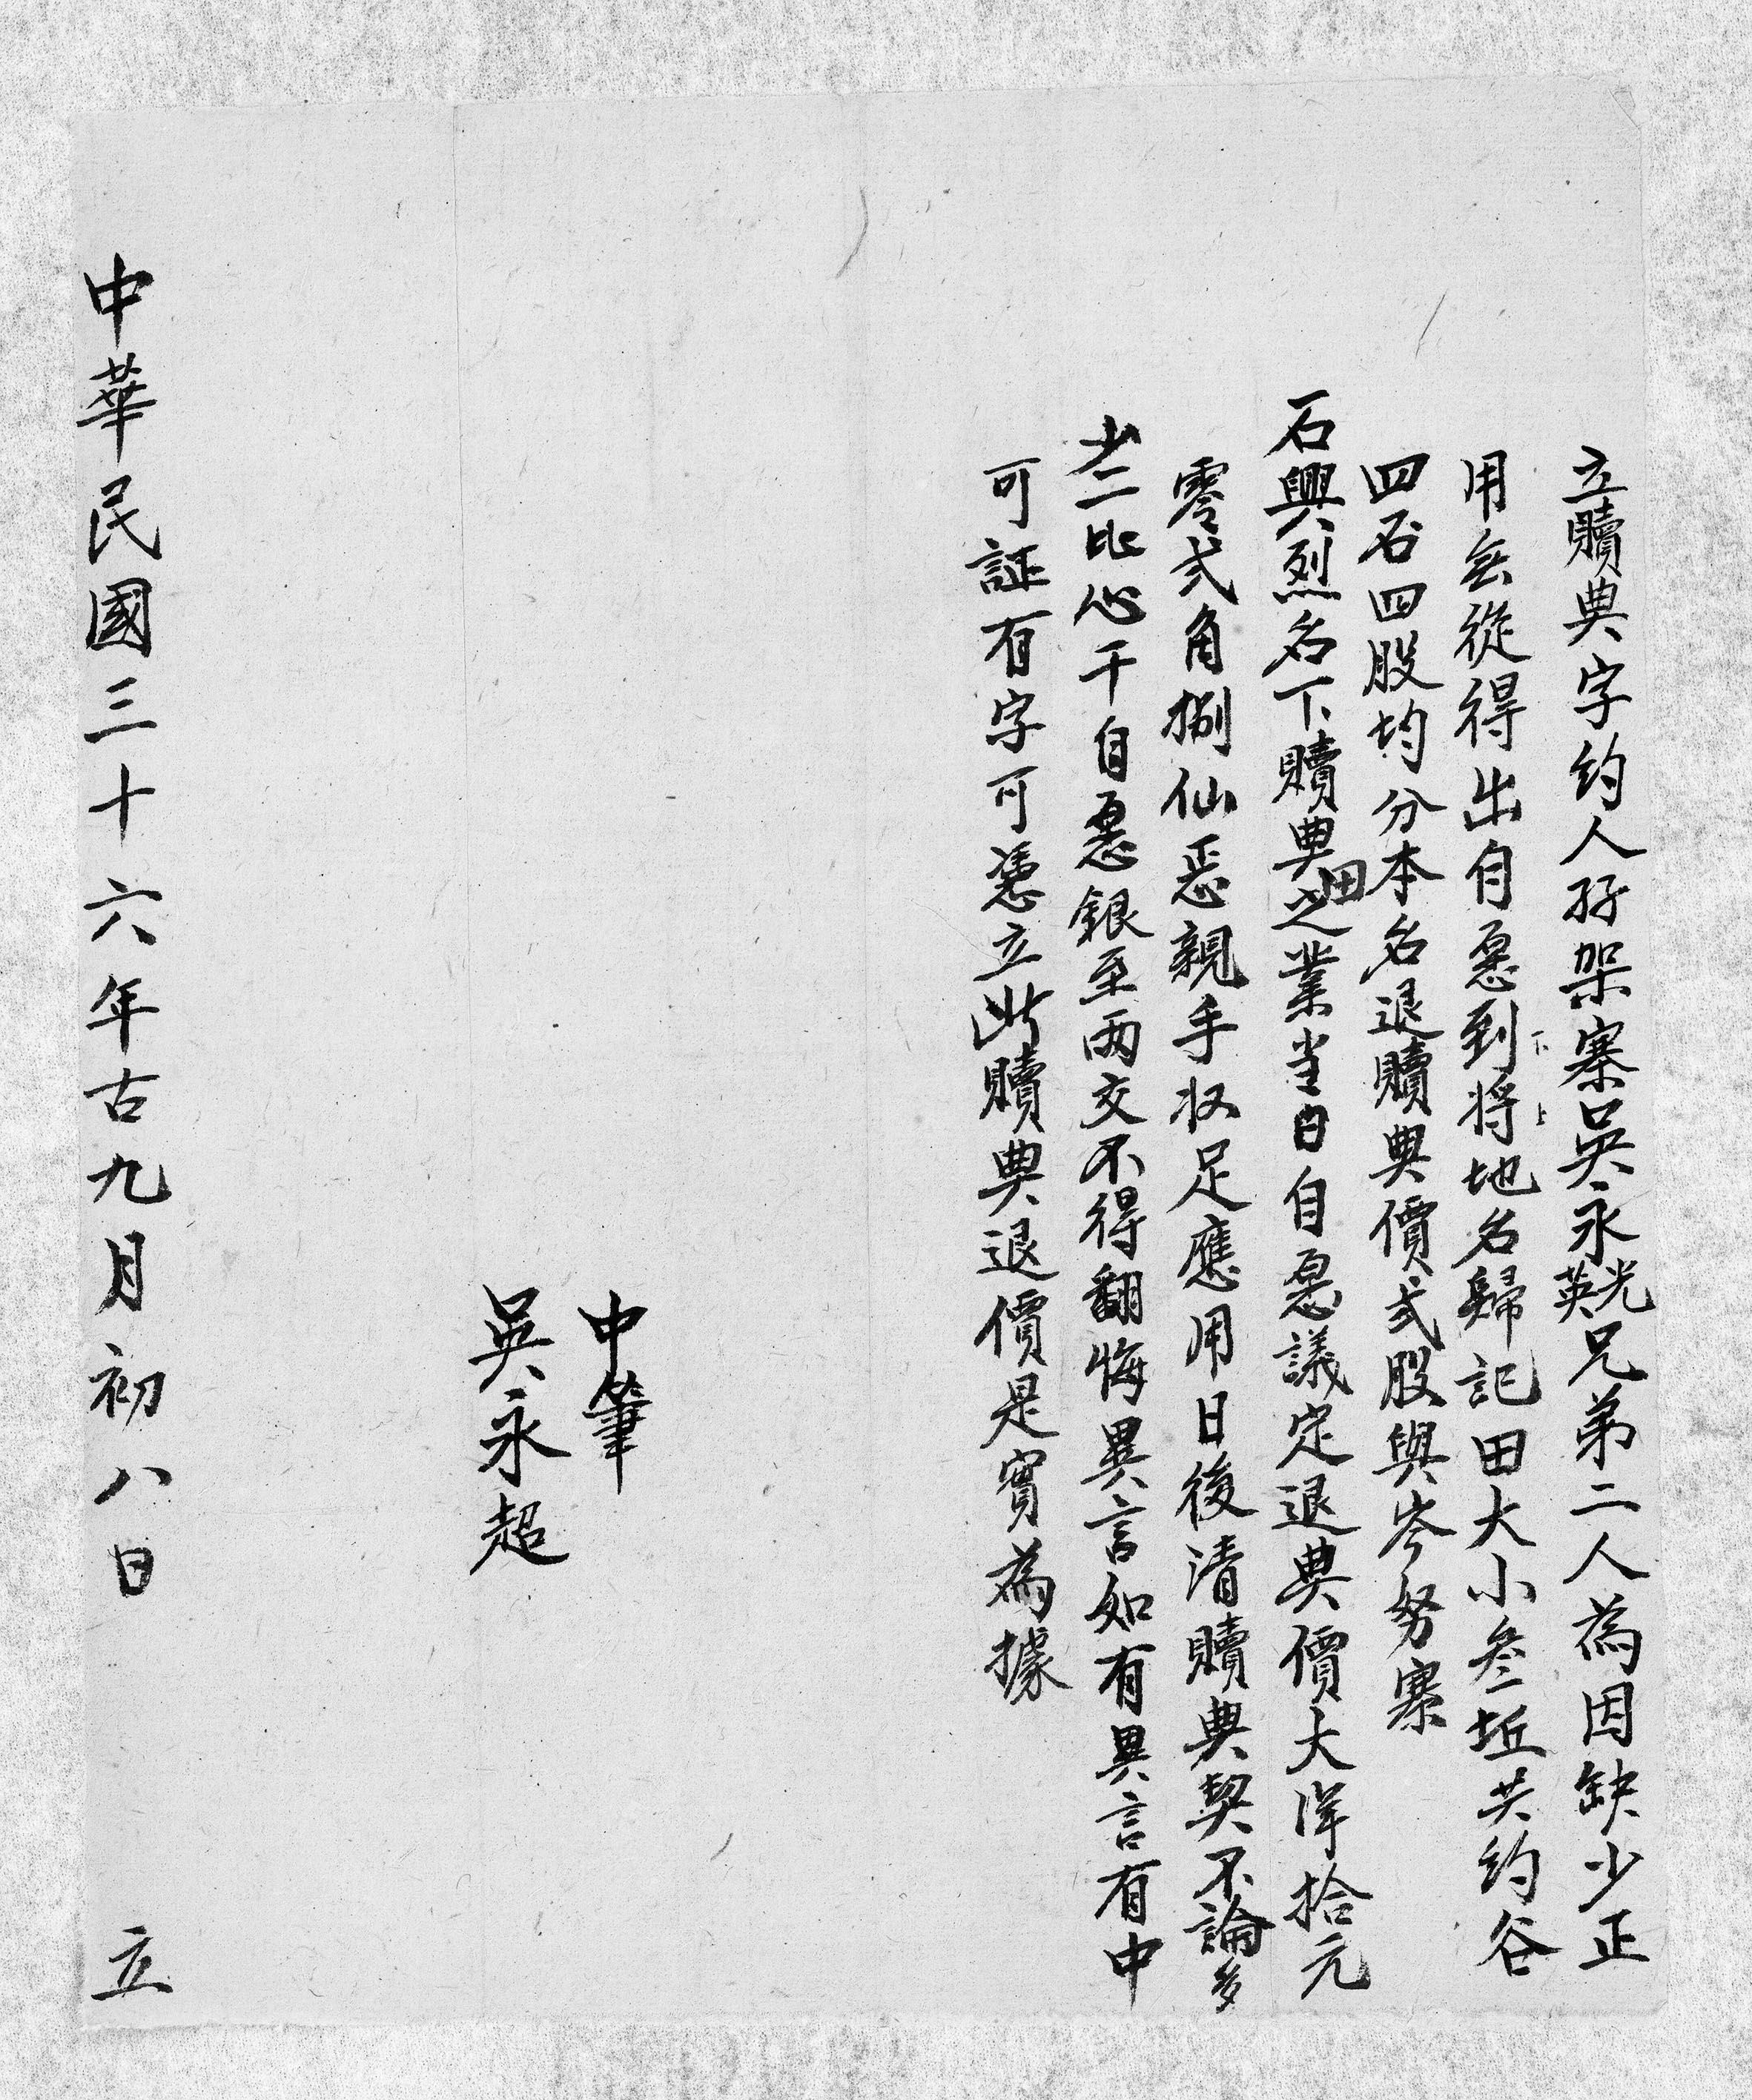 立贖典字约人孖架寨吴永光英兄弟二人為因缺少正
用無從得出自愿到將地名歸記田大小叁坵共约谷
下上
四石四股均分本名退贖典價弍股與岑努寨
石興烈名下贖典田之業當日自愿議定退典價大洋拾元
零弍角捌仙正親手收足應用日後清贖典契不論多
少二比心干自愿銀至兩交不得翻悔異言如有異言有中
可証有字可憑立此贖典退價是實為據
中筆
吳永超
中華民國三十六年古九月初八日 立